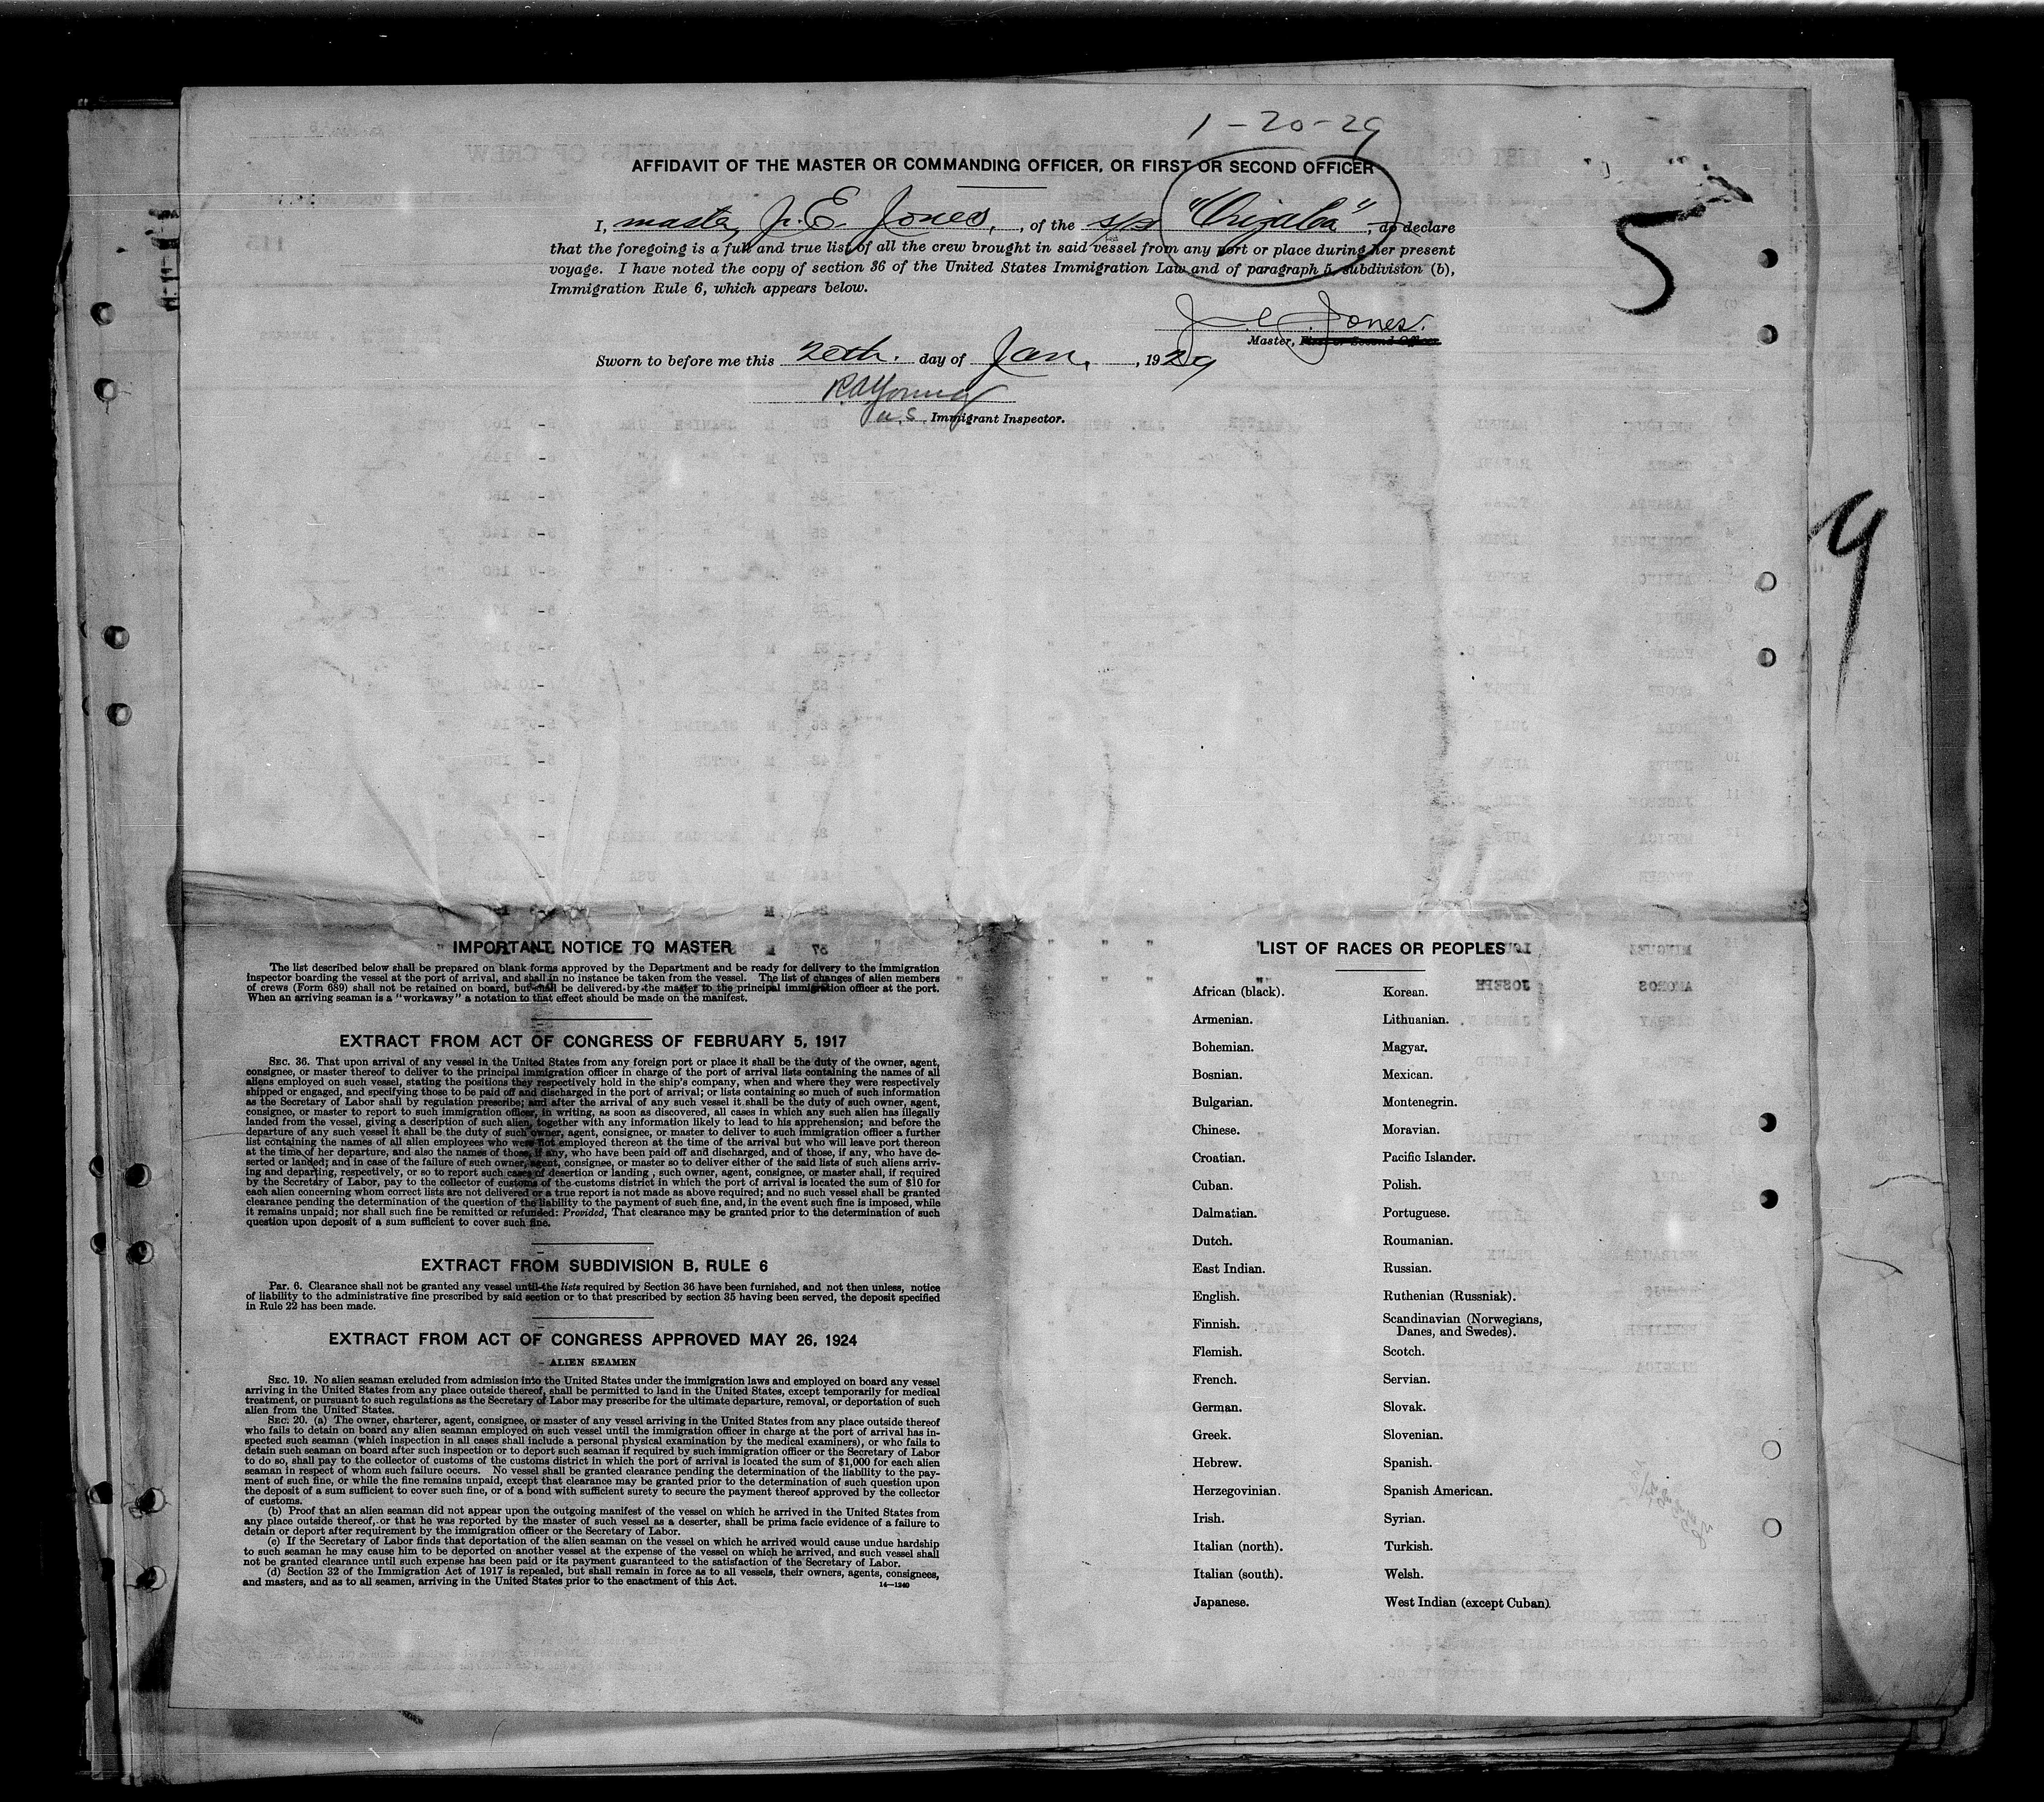 1-20-29
AFFIDAVIT OF THE MASTER OR COMMANDING OFFICER, OR FIRST OR SECOND OFFICER
I, master, J. E. Jones, , of the s/s "Orizaba", do declare
that the foregoing is a full and true list of all the crew brought in said vessel from any port or place during her present
voyage. I have noted the copy of section 36 of the United States Immigration Law and of paragraph 5, subdivision (b),
Immigration Rule 6, which appears below.
5
J. E. Jones.
Master, First or Second Officer.
Sworn to before me this 20th. day of Jan. , 1929
R A Young
U.S. Immigrant Inspector.
9
IMPORTANT NOTICE TO MASTER
The list described below shall be prepared on blank forms approved by the Department and be ready for delivery to the immigration
inspector boarding the vessel at the port of arrival, and shall in no instance be taken from the vessel. The list of changes of alien members
of crews (Form 689) shall not be retained on board, but shall be delivered by the master to the principal immigration officer at the port.
When an arriving seaman is a "workaway" a notation to that effect should be made on the manifest.
EXTRACT FROM ACT OF CONGRESS OF FEBRUARY 5, 1917
SEC. 36. That upon arrival of any vessel in the United States from any foreign port or place it shall be the duty of the owner, agent,
consignee, or master thereof to deliver to the principal immigration officer in charge of the port of arrival lists containing the names of all
aliens employed on such vessel, stating the positions they respectively hold in the ship's company, when and where they were respectively
shipped or engaged, and specifying those to be paid off and discharged in the port of arrival; or lists containing so much of such information
as the Secretary of Labor shall by regulation prescribe; and after the arrival of any such vessel it shall be the duty of such owner, agent,
consignee, or master to report to such immigration officer, in writing, as soon as discovered, all cases in which any such alien has illegally
landed from the vessel, giving a description of such alien, together with any information likely to lead to his apprehension; and before the
departure of any such vessel it shall be the duty of such owner, agent, consignee, or master to deliver to such immigration officer a further
list containing the names of all alien employees who were not employed thereon at the time of the arrival but who will leave port thereon
at the time of her departure, and also the names of those, if any, who have been paid off and discharged, and of those, if any, who have de-
serted or landed; and in case of the failure of such owner, agent, consignee, or master so to deliver either of the said lists of such aliens arriv-
ing and departing, respectively, or so to report such cases of desertion or landing, such owner, agent, consignee, or master shall, if required
by the Secretary of Labor, pay to the collector of customs of the customs district in which the port of arrival is located the sum of $10 for
each alien concerning whom correct lists are not delivered or a true report is not made as above required; and no such vessel shall be granted
clearance pending the determination of the question of the liability to the payment of such fine, and, in the event such fine is imposed, while
it remains unpaid; nor shall such fine be remitted or refunded: Provided, That clearance may be granted prior to the determination of such
question upon deposit of a sum sufficient to cover such fine.
EXTRACT FROM SUBDIVISION B, RULE 6
Par. 6. Clearance shall not be granted any vessel until the lists required by Section 36 have been furnished, and not then unless, notice
of liability to the administrative fine prescribed by said section or to that prescribed by section 35 having been served, the deposit specified
in Rule 22 has been made.
EXTRACT FROM ACT OF CONGRESS APPROVED MAY 26, 1924
ALIEN SEAMEN
SEC. 19. No alien seaman excluded from admission into the United States under the immigration laws and employed on board any vessel
arriving in the United States from any place outside thereof, shall be permitted to land in the United States, except temporarily for medical
treatment, or pursuant to such regulations as the Secretary of Labor may prescribe for the ultimate departure, removal, or deportation of such
alien from the United States.
SEC. 20. (a) The owner, charterer, agent, consignee, or master of any vessel arriving in the United States from any place outside thereof
who fails to detain on board any alien seaman employed on such vessel until the immigration officer in charge at the port of arrival has in-
spected such seaman (which inspection in all cases shall include a personal physical examination by the medical examiners), or who fails to
detain such seaman on board after such inspection or to deport such seaman if required by such immigration officer or the Secretary of Labor
to do so, shall pay to the collector of customs of the customs district in which the port of arrival is located the sum of $1,000 for each alien
seaman in respect of whom such failure occurs. No vessel shall be granted clearance pending the determination of the liability to the pay-
ment of such fine, or while the fine remains unpaid, except that clearance may be granted prior to the determination of such question upon
the deposit of a sum sufficient to cover such fine, or of a bond with sufficient surety to secure the payment thereof approved by the collector
of customs.
(b) Proof that an alien seaman did not appear upon the outgoing manifest of the vessel on which he arrived in the United States from
any place outside thereof, or that he was reported by the master of such vessel as a deserter, shall be prima facie evidence of a failure to
detain or deport after requirement by the immigration officer or the Secretary of Labor.
(c) If the Secretary of Labor finds that deportation of the alien seaman on the vessel on which he arrived would cause undue hardship
to such seaman he may cause him to be deported on another vessel at the expense of the vessel on which he arrived, and such vessel shall
not be granted clearance until such expense has been paid or its payment guaranteed to the satisfaction of the Secretary of Labor.
(d) Section 32 of the Immigration Act of 1917 is repealed, but shall remain in force as to all vessels, their owners, agents, consignees,
and masters, and as to all seamen, arriving in the United States prior to the enactment of this Act.
14—1240
LIST OF RACES OR PEOPLES
African (black). Korean.
Armenian. Lithuanian.
Bohemian. Magyar.
Bosnian. Mexican.
Bulgarian. Montenegrin.
Chinese. Moravian.
Croatian. Pacific Islander.
Cuban. Polish.
Dalmatian. Portuguese.
Dutch. Roumanian.
East Indian. Russian.
English. Ruthenian (Russniak).
Finnish. Scandinavian (Norwegians,
Danes, and Swedes).
Flemish. Scotch.
French. Servian.
German. Slovak.
Greek. Slovenian.
Hebrew. Spanish.
Herzegovinian. Spanish American.
Irish. Syrian.
Italian (north). Turkish.
Italian (south). Welsh.
Japanese. West Indian (except Cuban).